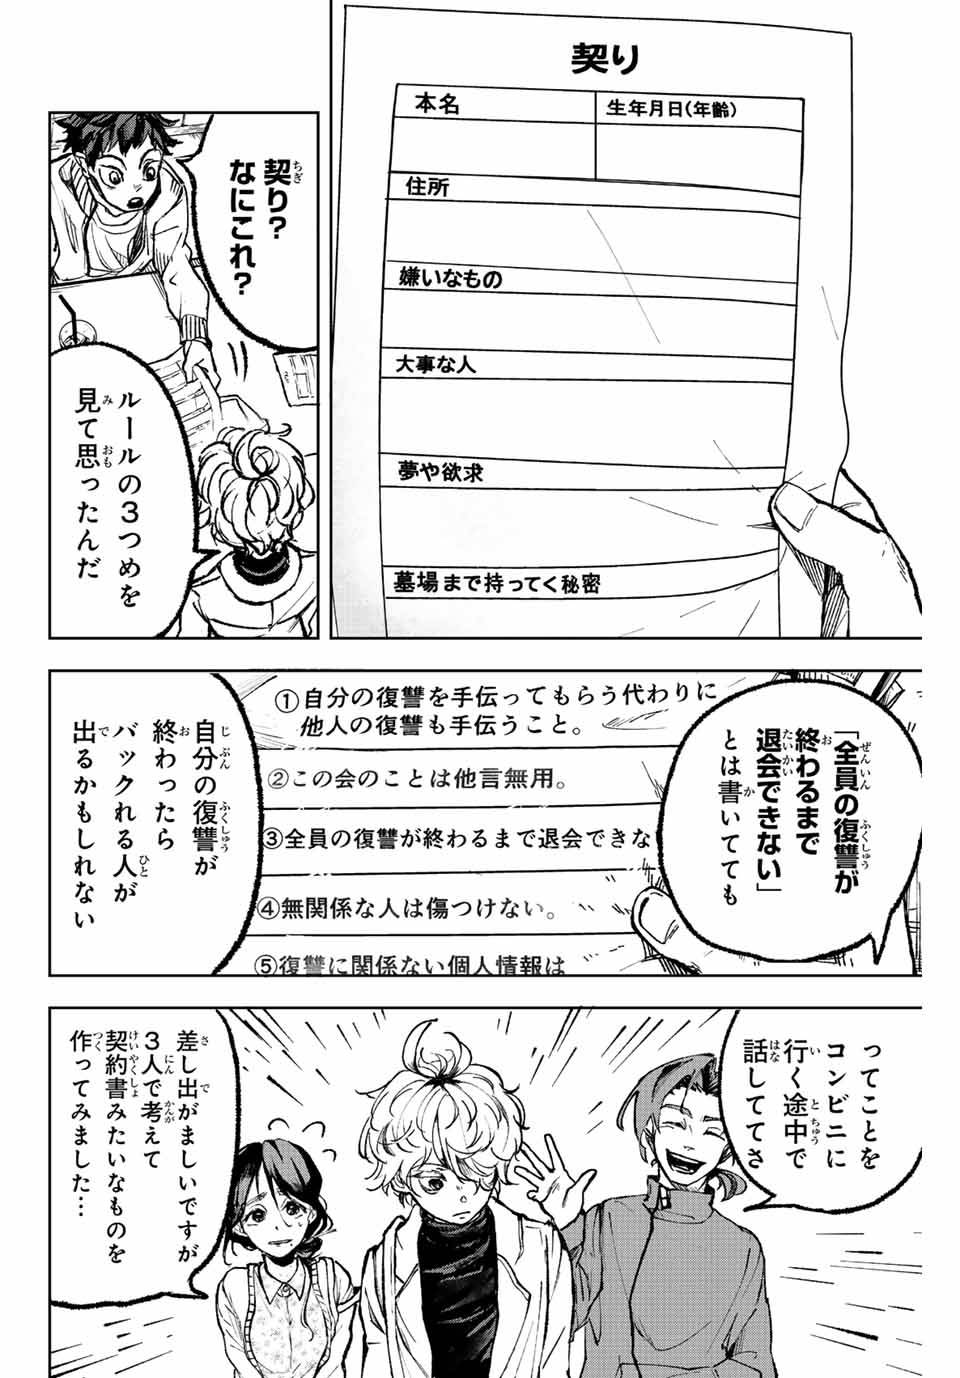 契り
本名
生年月日(年齢)
住所
嫌いなもの
大事な人
夢や欲求
墓場まで持ってく秘密
契り?
なにこれ?
ルールの3つめを
見て思ったんだ
「全員の復讐が
終わるまで
退会できない」
とは書いてても
①自分の復讐を手伝ってもらう代わりに
他人の復讐も手伝うこと。
②この会のことは他言無用。
③全員の復讐が終わるまで退会できな
④無関係な人は傷つけない。
⑤復讐に関係ない個人情報は
自分の復讐が
終わったら
バックれる人が
出るかもしれない
ってことを
コンビニに
行く途中で
話しててさ
差し出がましいですが
3人で考えて
契約書みたいなものを
作ってみました…